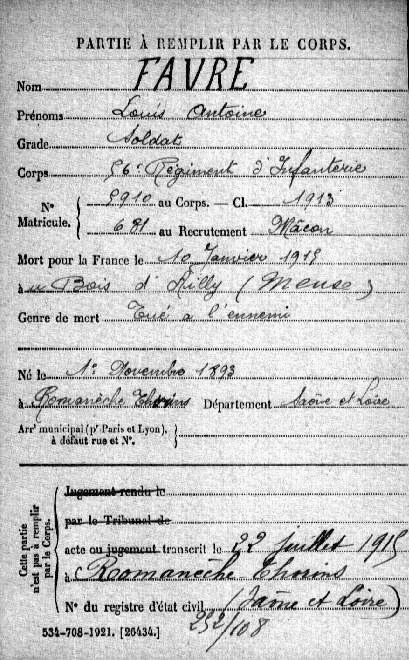 PARTIE À REMPLIR PAR LE CORPS.
Nom FAVRE
Prénoms Louis Antoine
Grade Soldat
Corps 56e Régiment d'Infanterie
N° Matricule. { 5910 au Corps. — Cl. 1913
681 au Recrutement Mâcon
Mort pour la France le 10 Janvier 1915
à au Bois d'Ailly (Meuse)
Genre de mort Tué a l'ennemi
Né le 1er Novembre 1893
à Romanèche Thorins Département Saône et Loire
Arr' municipal (p' Paris et Lyon),
à défaut rue et N°. }
Cette partie n'est pas à remplir par le Corps.
Jugement rendu le
par le Tribunal de
acte ou jugement transcrit le 22 juillet 1915
à Romanèche Thorins
N° du registre d'état civil (Saône et Loire)
252/108
534-708-1921. [26434.]